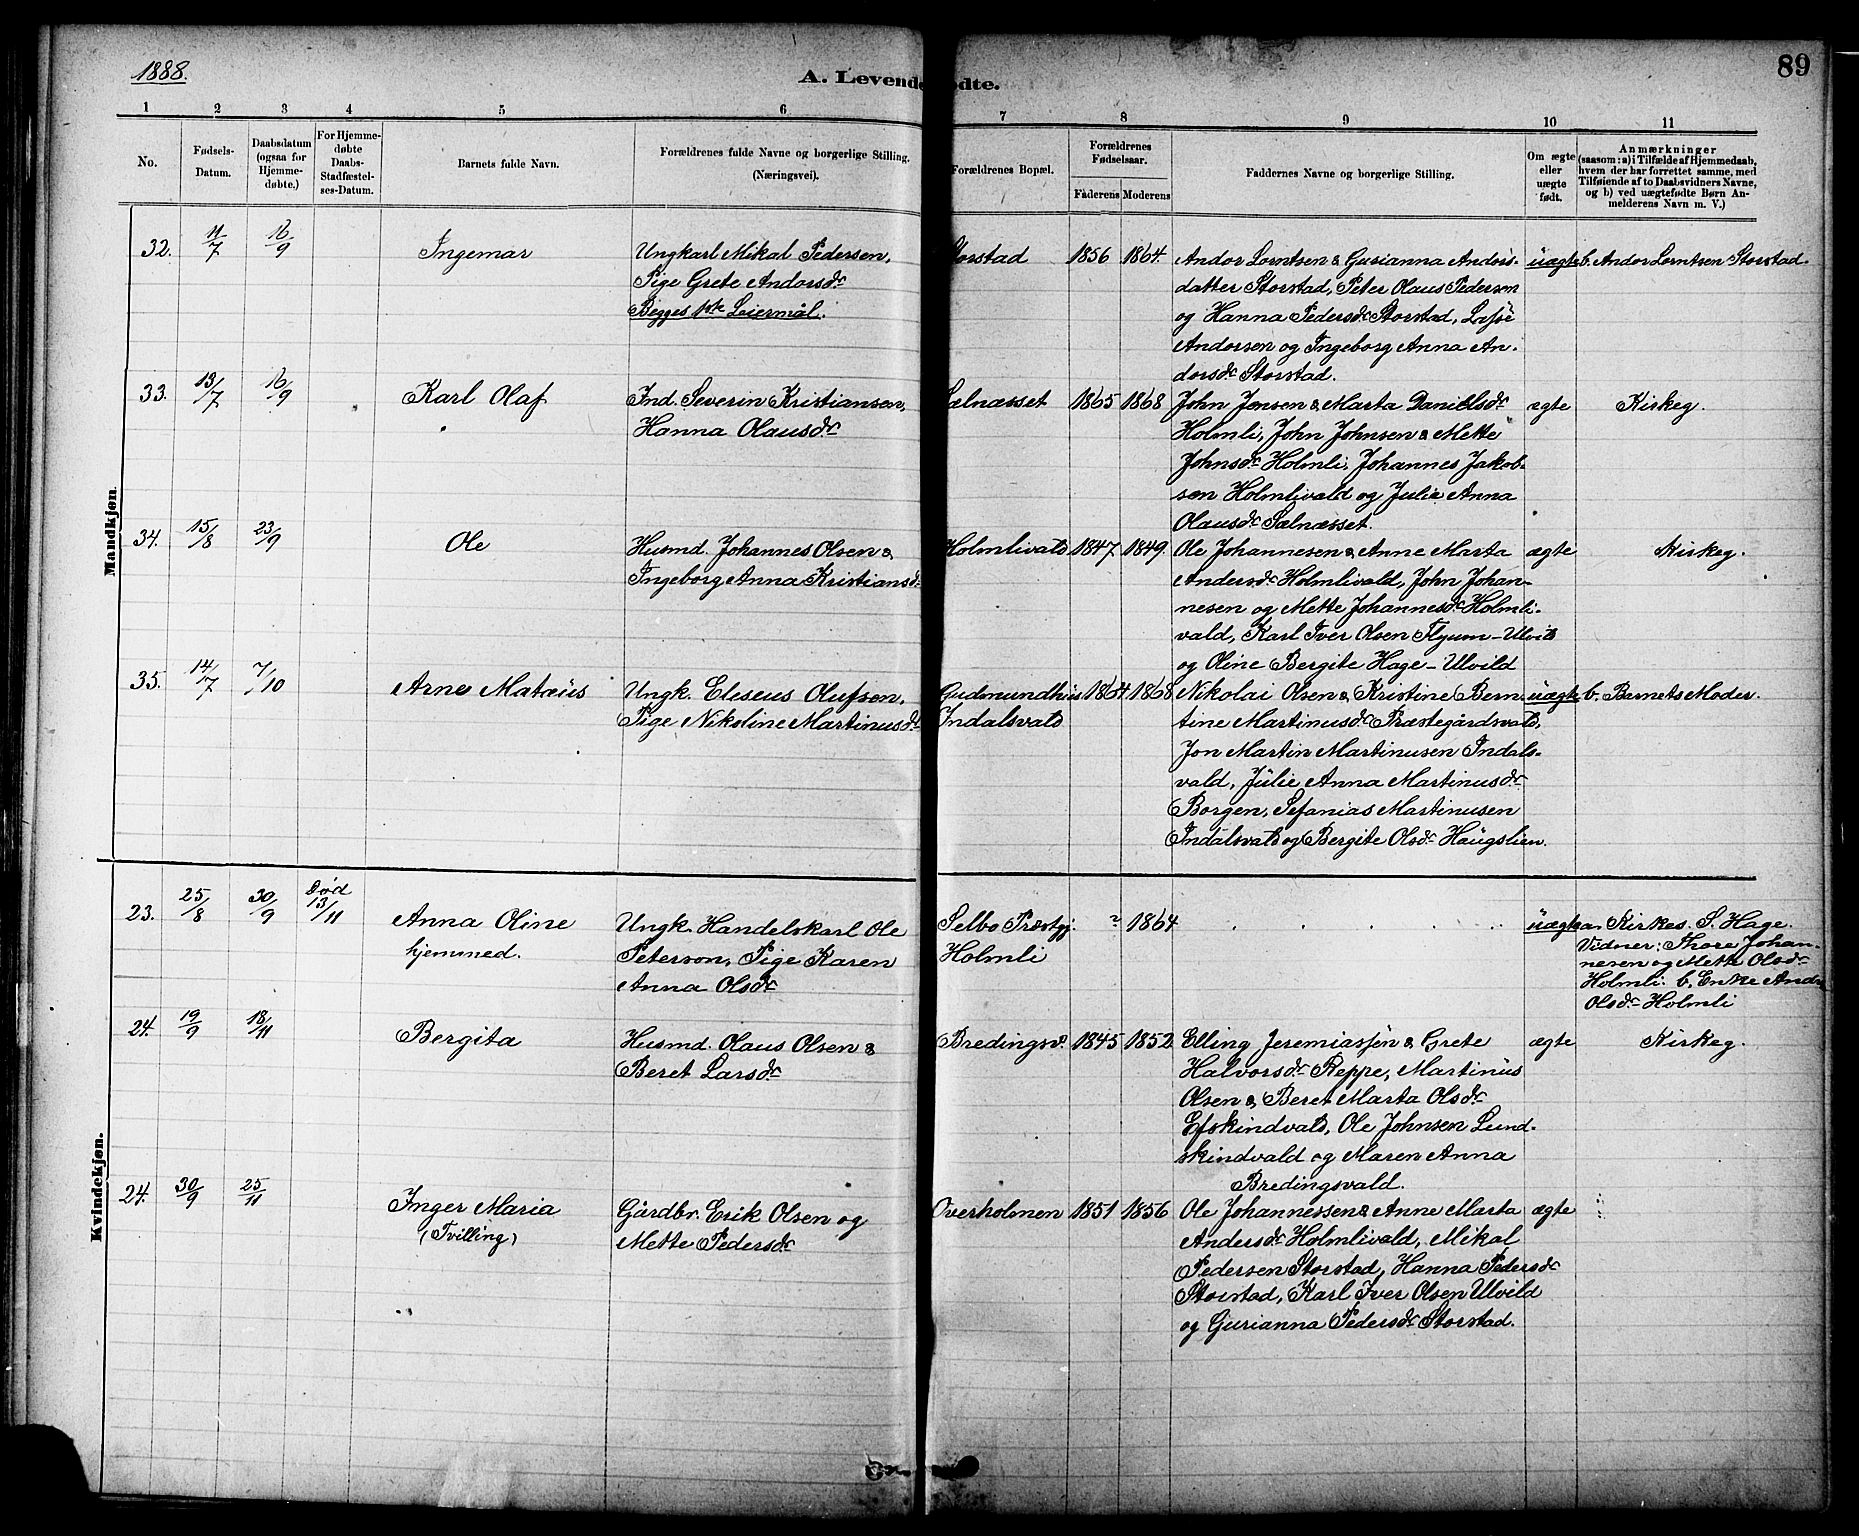 1888.
A. Levende
ødte.
89
1 2 3 4 5 6 7 8 9 10 11
No.
Fødsels-
Datum.
Daabsdatum
(ogsaa for
Hjemme-
døbte.)
For Hjemme-
døbte
Daabs-
Stadfæstel-
ses-Datum.
Barnets fulde Navn.
Forældrenes fulde Navne og borgerlige Stilling.
(Næringsvei).
Forældrenes Bopæl.
Forældrenes
Fødselsaar.
Faderens Moderens
Faddernes Navne og borgerlige Stilling.
Om ægte
eller
uægte
født.
Anmærkninger
(saasom: a) i Tilfælde af Hjemmedaab,
hvem der har forrettet samme, med
Tilføiende af to Daabsvidners Navne,
og b) ved uægtefødte Børn An-
melderens Navn m. V.)
Mandkjøn.
32. 11/7 16/9 Ingemar
Ungkarl Mikal Pedersen,
Pige Grete Andorsdr
Begges 1ste Leiermål.
Storstad 1856 1864.
Andor Lorntsen & Gurianna Andors-
datter Storstad, Peter Olaus Pedersen
og Hanna Pedersdr Storstad, Lasse
Andorsen og Ingeborg Anna An-
dorsdr Storstad.
uægte b. Andor Lorntsen Storstad.
33. 13/7 16/9 Karl Olaf
Ind. Severin Kristiansen,
Hanna Olausdr
Sælnæsset 1865 1868
John Jensen & Marta Danielsdr
Holmli, John Johnsen & Mette
Johnsdr Holmli, Johannes Jakob-
sen Holmlivald og Julie Anna
Olausdr Sælnæsset.
ægte Kirkeg.
34. 15/8 23/9 Ole
Husmd. Johannes Olsen &
Ingeborg Anna Kristiansdr
Holmlivald 1847 1849.
Ole Johannesen & Anne Marta
Andersdr Holmlivald, John Johan-
nesen og Mette Johannesdr Holmli-
vald, Karl Iver Olsen Flyum-Ulvild
og Oline Bergite Hage-Ulvild
ægte Kirkeg.
35. 14/7 7/10 Arne Matæus
Ungk. Eleseus Olufsen,
Pige Nikoline Martinusdr
Gudmundhus
Indalsvald
1864 1868
Nikolai Olsen & Kristine Bern-
tine Martinusdr Præstegårdsvald,
Jon Martin Martinusen Indals-
vald, Julie Anna Martinusdr
Borgen, Sefanias Martinusen
Indalsvald og Bergite Olsdr Haugslien.
uægte b. Barnets Moder.
Kvindekjøn.
23. 25/8 30/9 Død
13/11
Anna Oline
hjemmed.
Ungk. Handelskarl Ole
Peterson, Pige Karen
Anna Olsdr
Selbo Præstgj.
Holmli
? 1864
uægte a. Kirkes. S. Hage.
Vidner: Thore Johan-
nesen og Mette Olsdr
Holmli. b. Enke
Olsdr Holmli
24. 19/9 18/11 Bergita
Husmd. Olaus Olsen &
Beret Larsdr
Bredingsv. 1845 1852
Elling Jeremiassen & Grete
Halvorsdr Reppe, Martinus
Olsen & Beret Marta Olsdr
Efskindvald, Ole Johnsen Lund-
skindvald og Maren Anna
Bredingsvald.
ægte Kirkeg.
24. 30/9 25/11 Inger Maria
(Tvilling)
Gårdbr. Erik Olsen og
Mette Pedersdr
Overholmen 1851 1856
Ole Johannessen & Anne Marta
Andersdr Holmlivald, Mikal
Pedersen Storstad, Hanna Pedersdr
Storstad, Karl Iver Olsen Ulvild
og Gurianna Pedersdr Storstad.
ægte